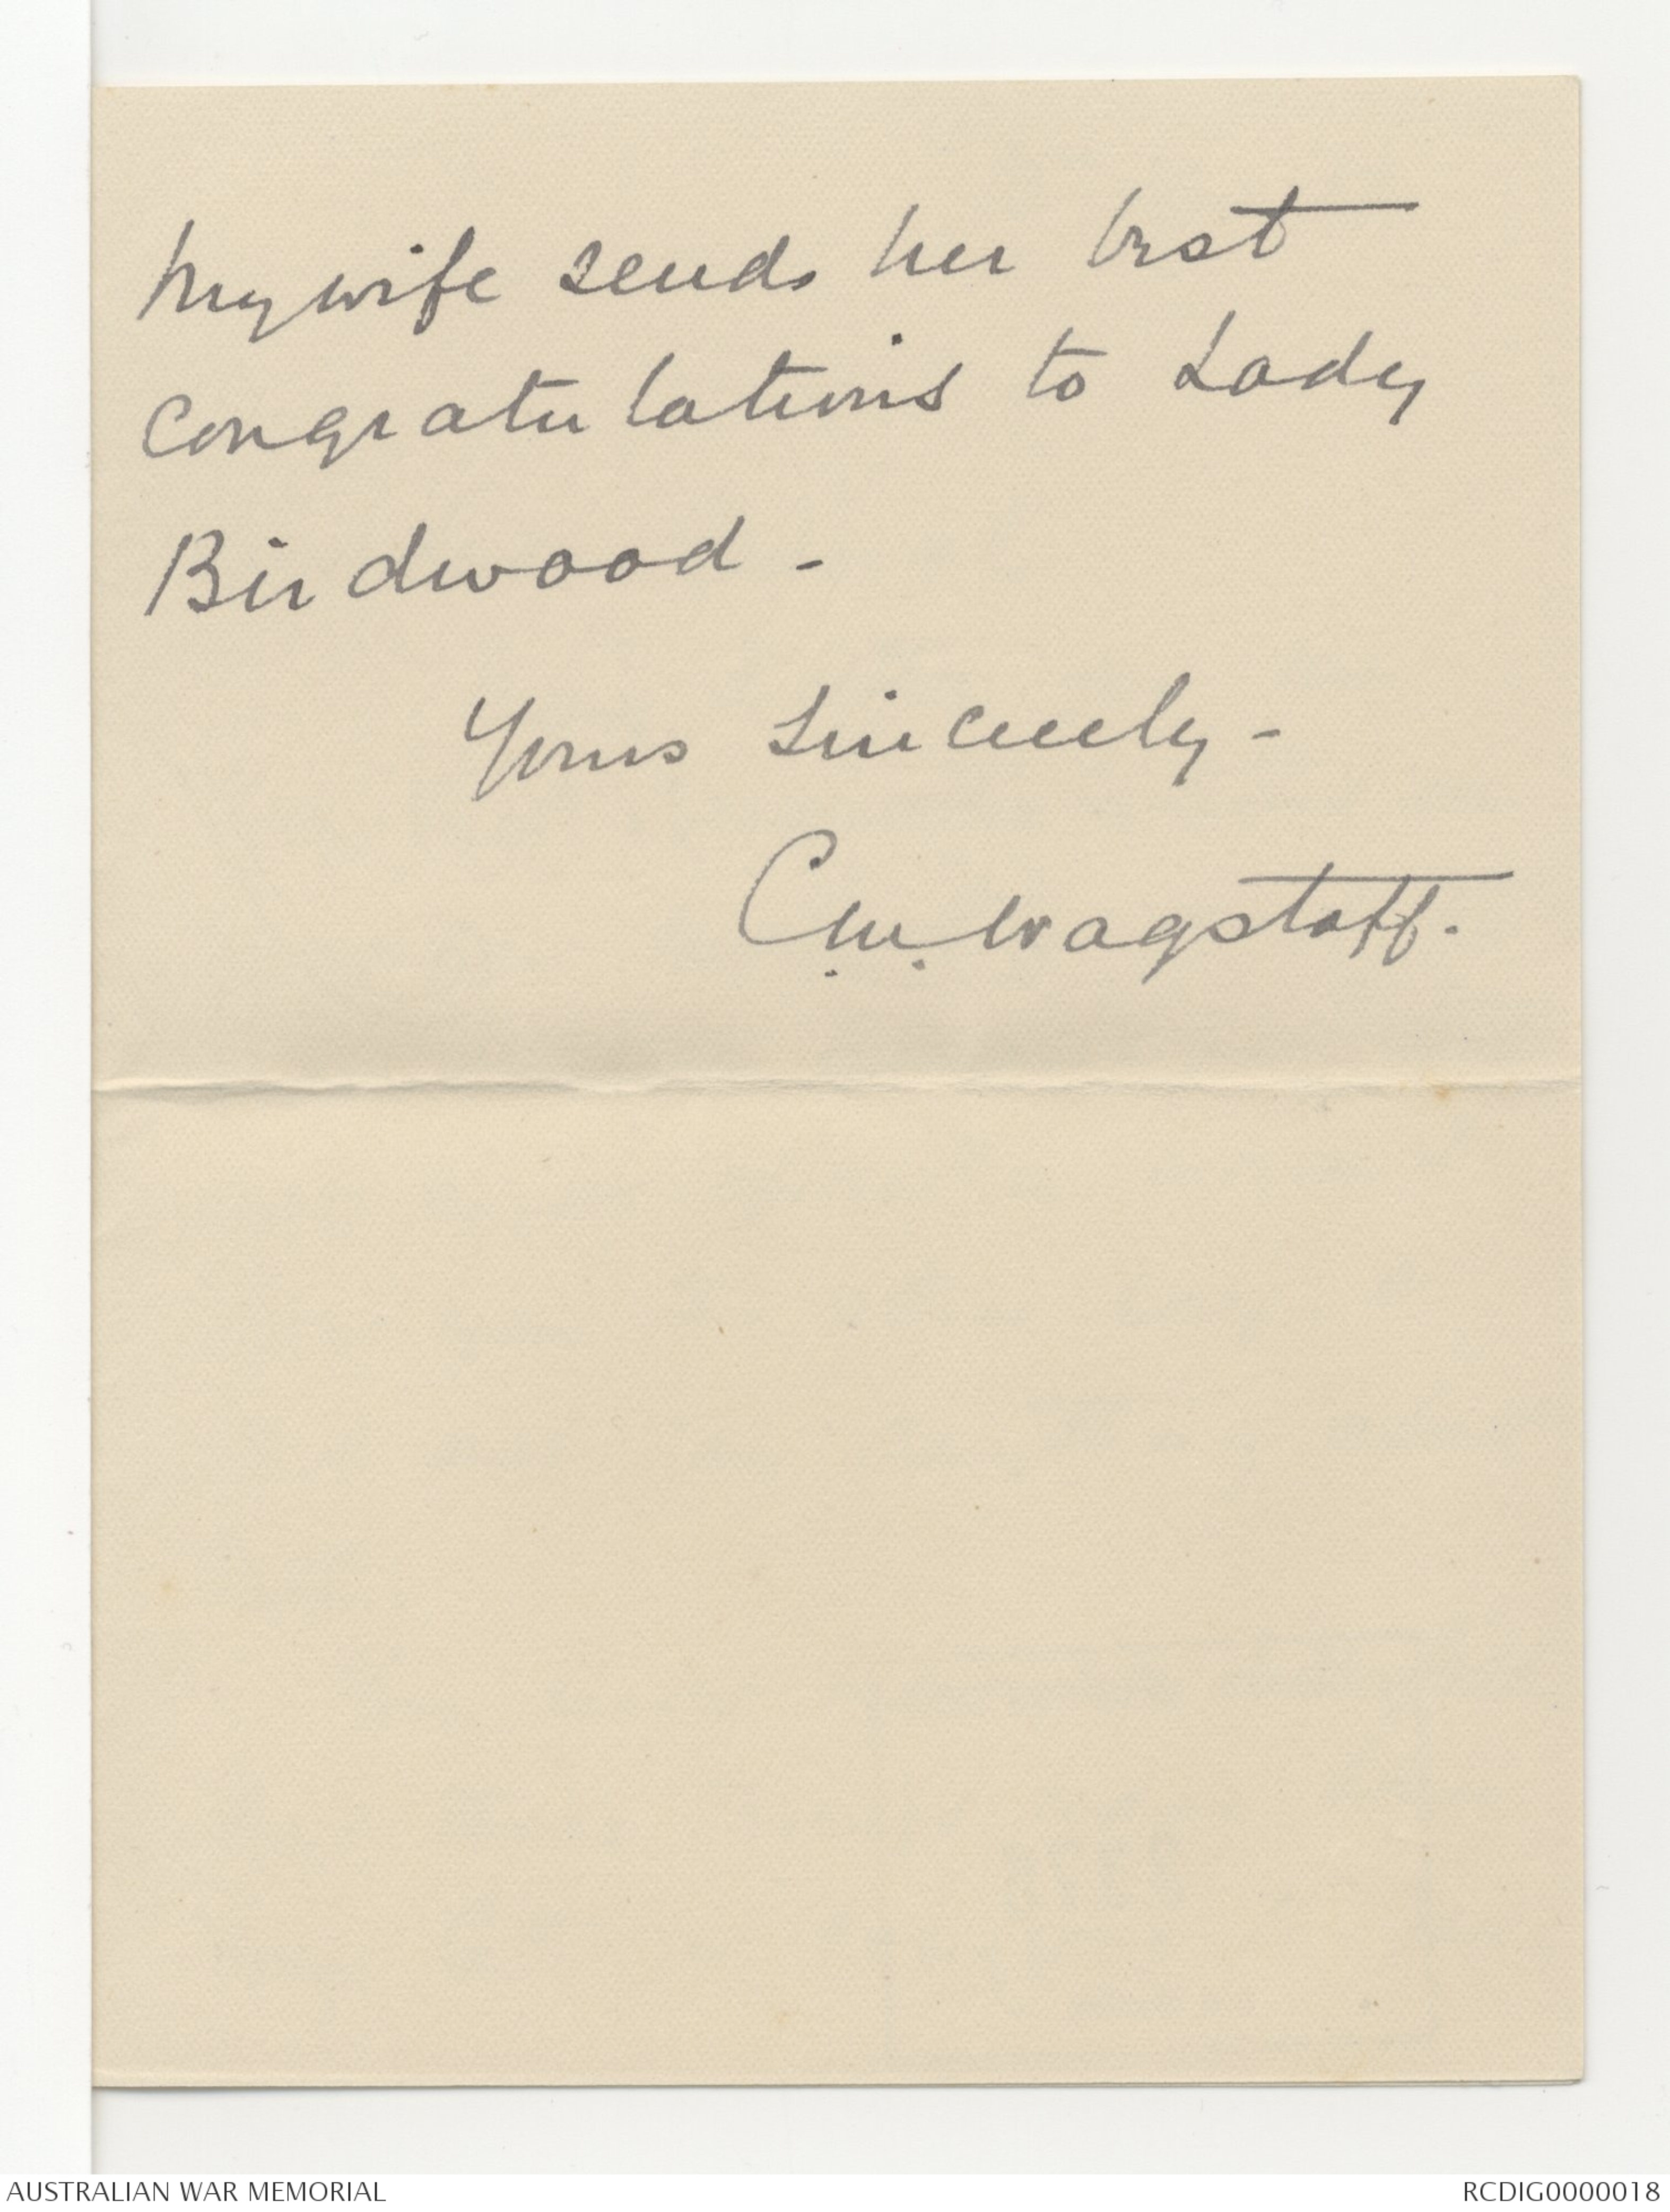 My wife sends her best
Congratulations to Lady
Birdwood -
Yours Sincerely -
C.M. Wagstaff.
AUSTRALIAN WAR MEMORIAL
RCDIG0000018